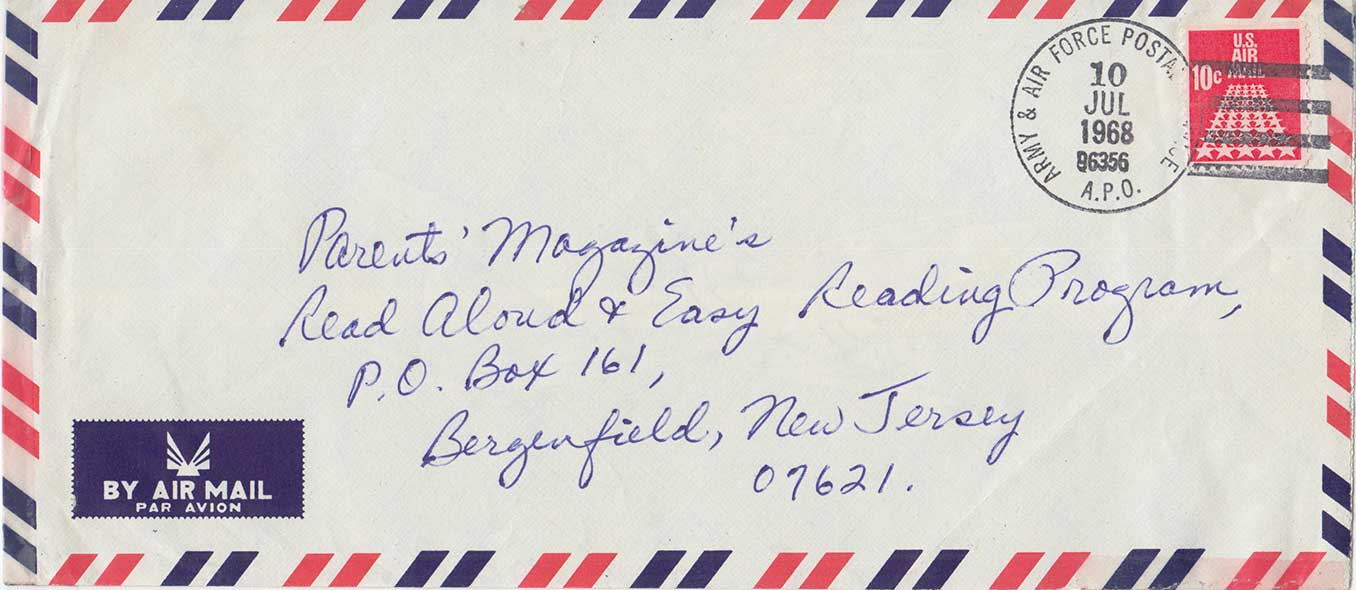 ARMY & AIR FORCE POSTAL
10
JUL
1968
96356
A.P.O.
U.S.
AIR
MAIL
10c
Parents' Magazine's
Read Aloud & Easy Reading Program,
P.O. Box 161,
Bergenfield, New Jersey
07621.
BY AIR MAIL
PAR AVION